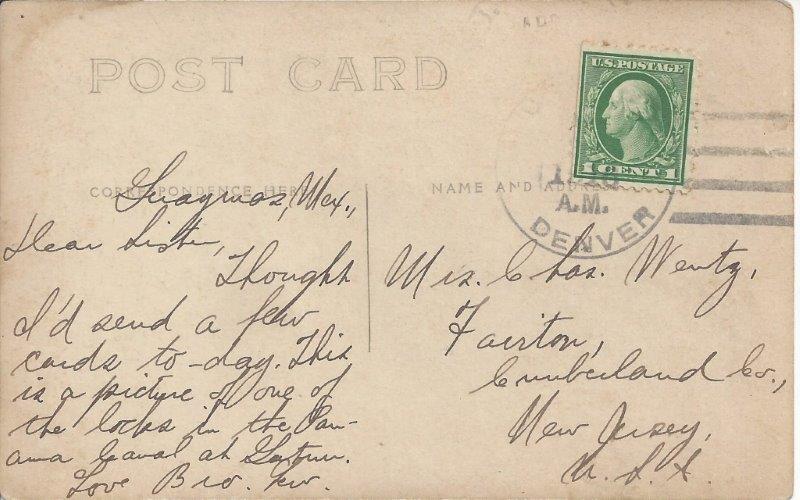 POST CARD
U.S. POSTAGE
1 CENT 1
A.M.
DENVER
CORRESPONDENCE HERE
NAME AND ADDRESS
Guaymas, Mex.,
Dear Sister,
Thought
I'd send a few
cards to-day. This
is a picture of one of
the locks in the Pan-
ama Canal at Gatun.
Love Bro.
Mrs. Chas. Wentz,
Fairton,
Cumberland Co.,
New Jersey,
U. S. A.